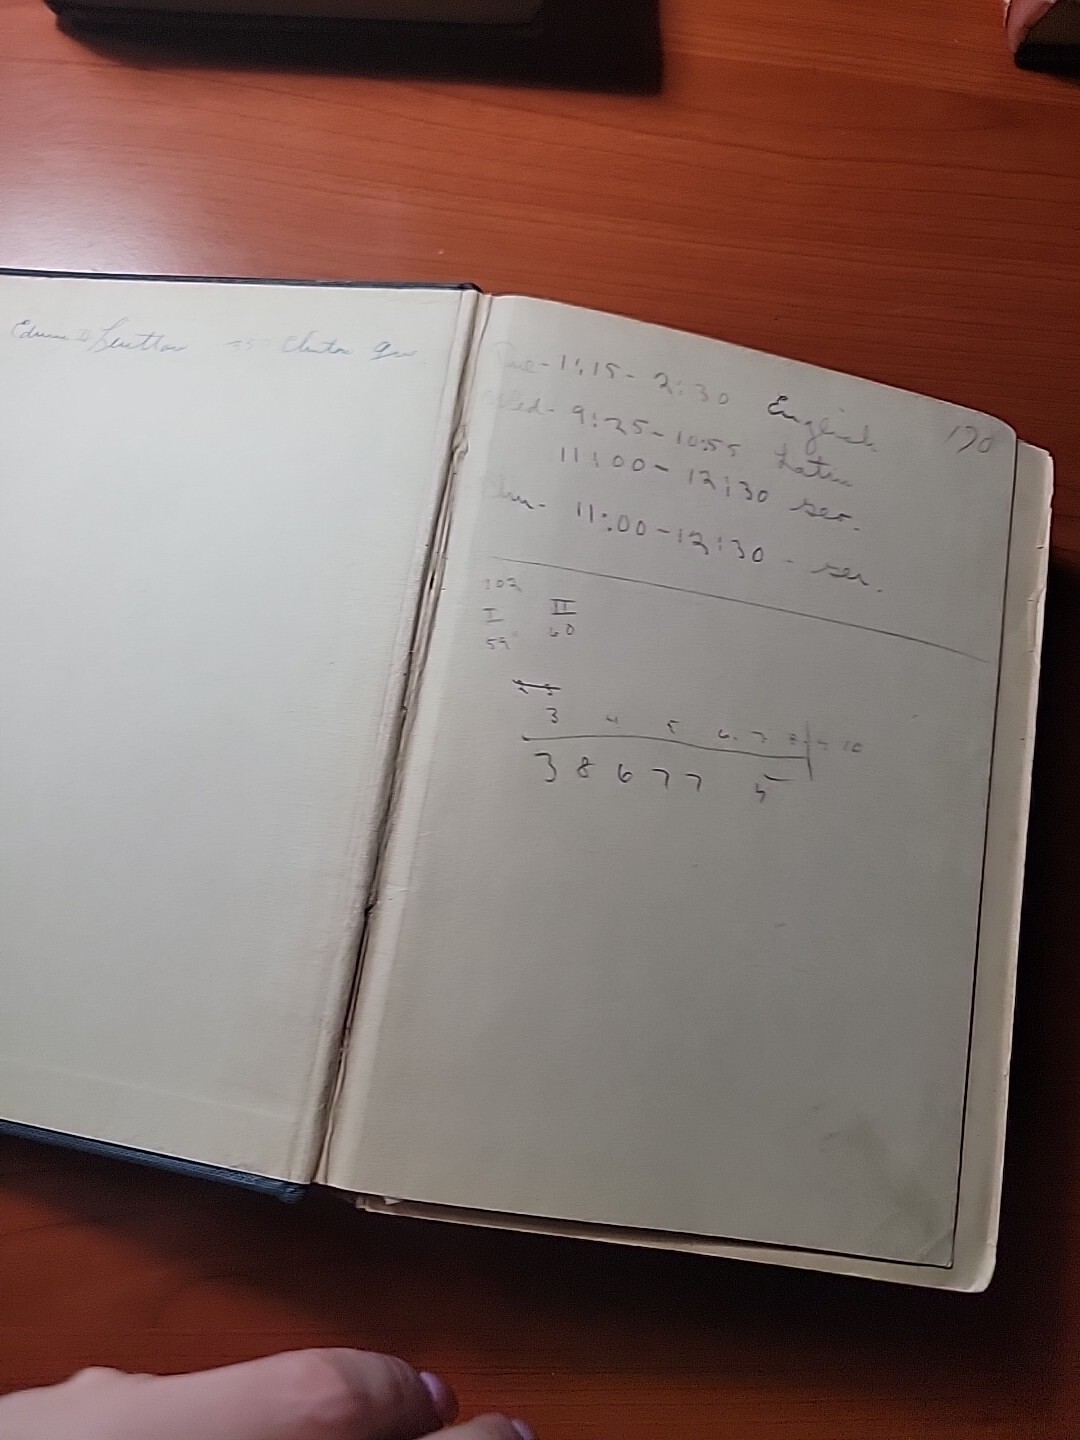 Clinton Ave.
Tue- 1:15- 2:30 English
Wed- 9:25-10:55 Latin
11:00- 12:30
Thu- 11:00-12:30 -
170
102
I II
59 60
3 4 5 6 7 8 9 10
3 8 6 7 7 5